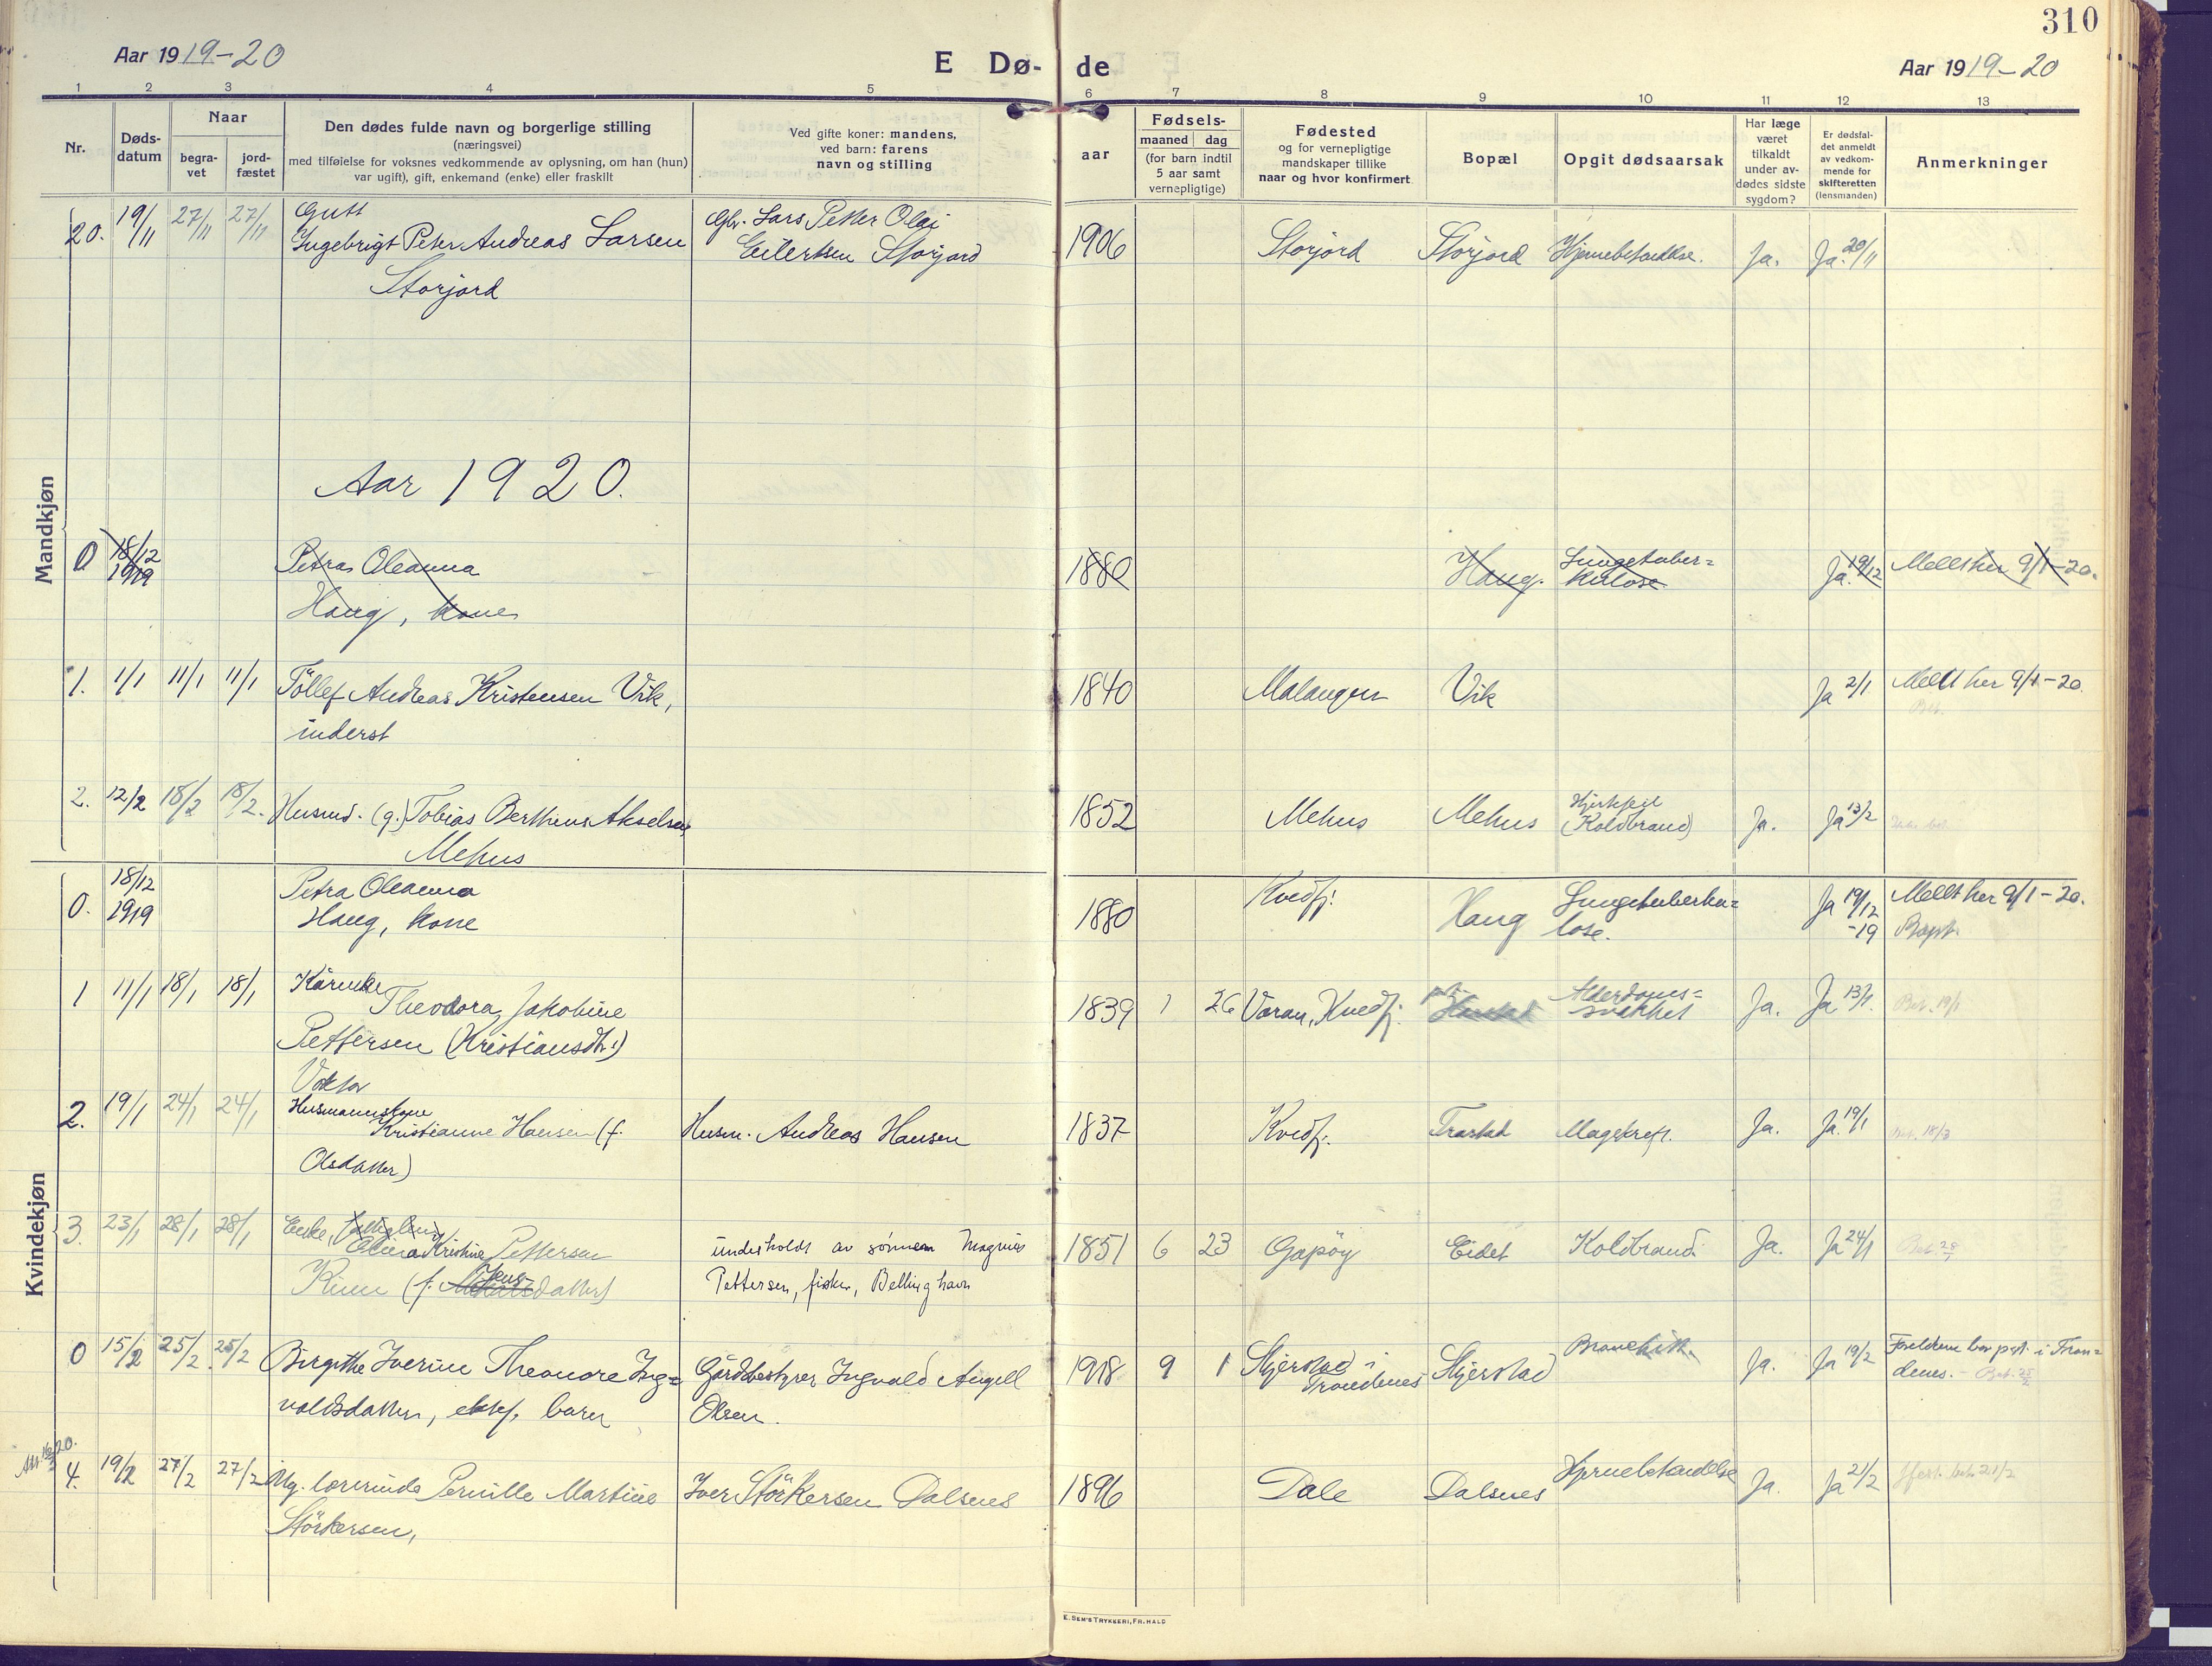 310
Aar 1919-20
E Dø- de
Aar 1919-20
1 2 3 4 5 6 7 8 9 10 11 12 13
Nr.
Døds-
datum
Naar
begra-
vet
jord-
fæstet
Den dødes fulde navn og borgerlige stilling
(næringsvei)
med tilføielse for voksnes vedkommende av oplysning, om han (hun)
var ugift), gift, enkemand (enke) eller fraskilt
Ved gifte koner: mandens,
ved barn: farens
navn og stilling
aar
Fødsels-
maaned dag
(for barn indtil
5 aar samt
vernepligtige)
Fødested
og for vernepligtige
mandskaper tillike
naar og hvor konfirmert
Bopæl
Opgit dødsaarsak
Har læge
været
tilkaldt
under av-
dødes sidste
sygdom?
Er dødsfal-
det anmeldt
av vedkom-
mende for
skifteretten
(lensmanden)
Anmerkninger
Mandkjøn
20. 19/11 27/11 27/11 Gutt
Ingebrigt Peter Andreas Larsen
Storjord
Gbr. Lars Petter Olai
Eilertsen Storjord
1906 Storjord Storjord Hjernebetændelse. Ja. Ja. 20/11
Aar 1920.
0 18/12 1919 Petra Oleanna
Haug, kone
1880 Haug. Lungetuber=
kulose. Ja. 19/12 Meldt her 9/1-20.
1. 1/1 11/1 11/1 Töllef Andreas Kristensen Vik,
inderst
1840 Malangen Vik Ja 2/1 Meldt her 9/1-20.
2. 12/2 18/2 18/2. Husmd. (g.) Tobias Bertheus Akselsen
Mehus
1852 Mehus Mehus Hjertefeil
(Koldbrand) Ja. Ja 13/2
Kvindekjøn
0. 18/12 1919 Petra Oleanna
Haug, kone
1880 Kvedfj. Haug Lungetuberku=
lose. Ja 19/12 -19 Meldt her 9/1-20.
Bapt.
1 11/1 18/1 18/1 Kårenke
Theodora Jakobine
Pettersen (Kristiansdtr.)
1839 1 26 Voran, Kvedfj. Alderdoms=
svakhet Ja. Ja 13/1. Bet. 19/1
2. 19/1 24/1 24/1 Husmannskone
Kristianne Hansen (f.
Olsdatter)
Husm. Andreas Hansen
1837 Kvedfj. Trastad Magekreft. Ja. Ja. 19/1 Bet. 18/3
3. 23/1 28/1 28/1 Enke,
Kristine Pettersen
(f. Jensdatter)
underholdt av sönnen Magnus
Pettersen, fisker, Belling havn
1851 6 23 Gapöy Eidet Koldbrand. Ja. Ja 24/1
0 15/2 25/2 25/2 Birgithe Iverine Theonore Ing=
valdsdatter, ektef. barn
Gårdbestyrer Ingvald Angell
Olsen.
1918 9 1 Skjerstad i
Trondenes Skjerstad Ja. Ja 19/2 Foreldrene bor pst. i Tron=
denes.
4. 19/2 27/2 27/2 Ug. lærerinde Pernille Martine
Störkersen,
Iver Störkersen Dalsnes
1896 Dale Dalsnes Hjernebetændelse Ja. Ja 21/2
E. SEM'S TRYKKERI, FR.HALD